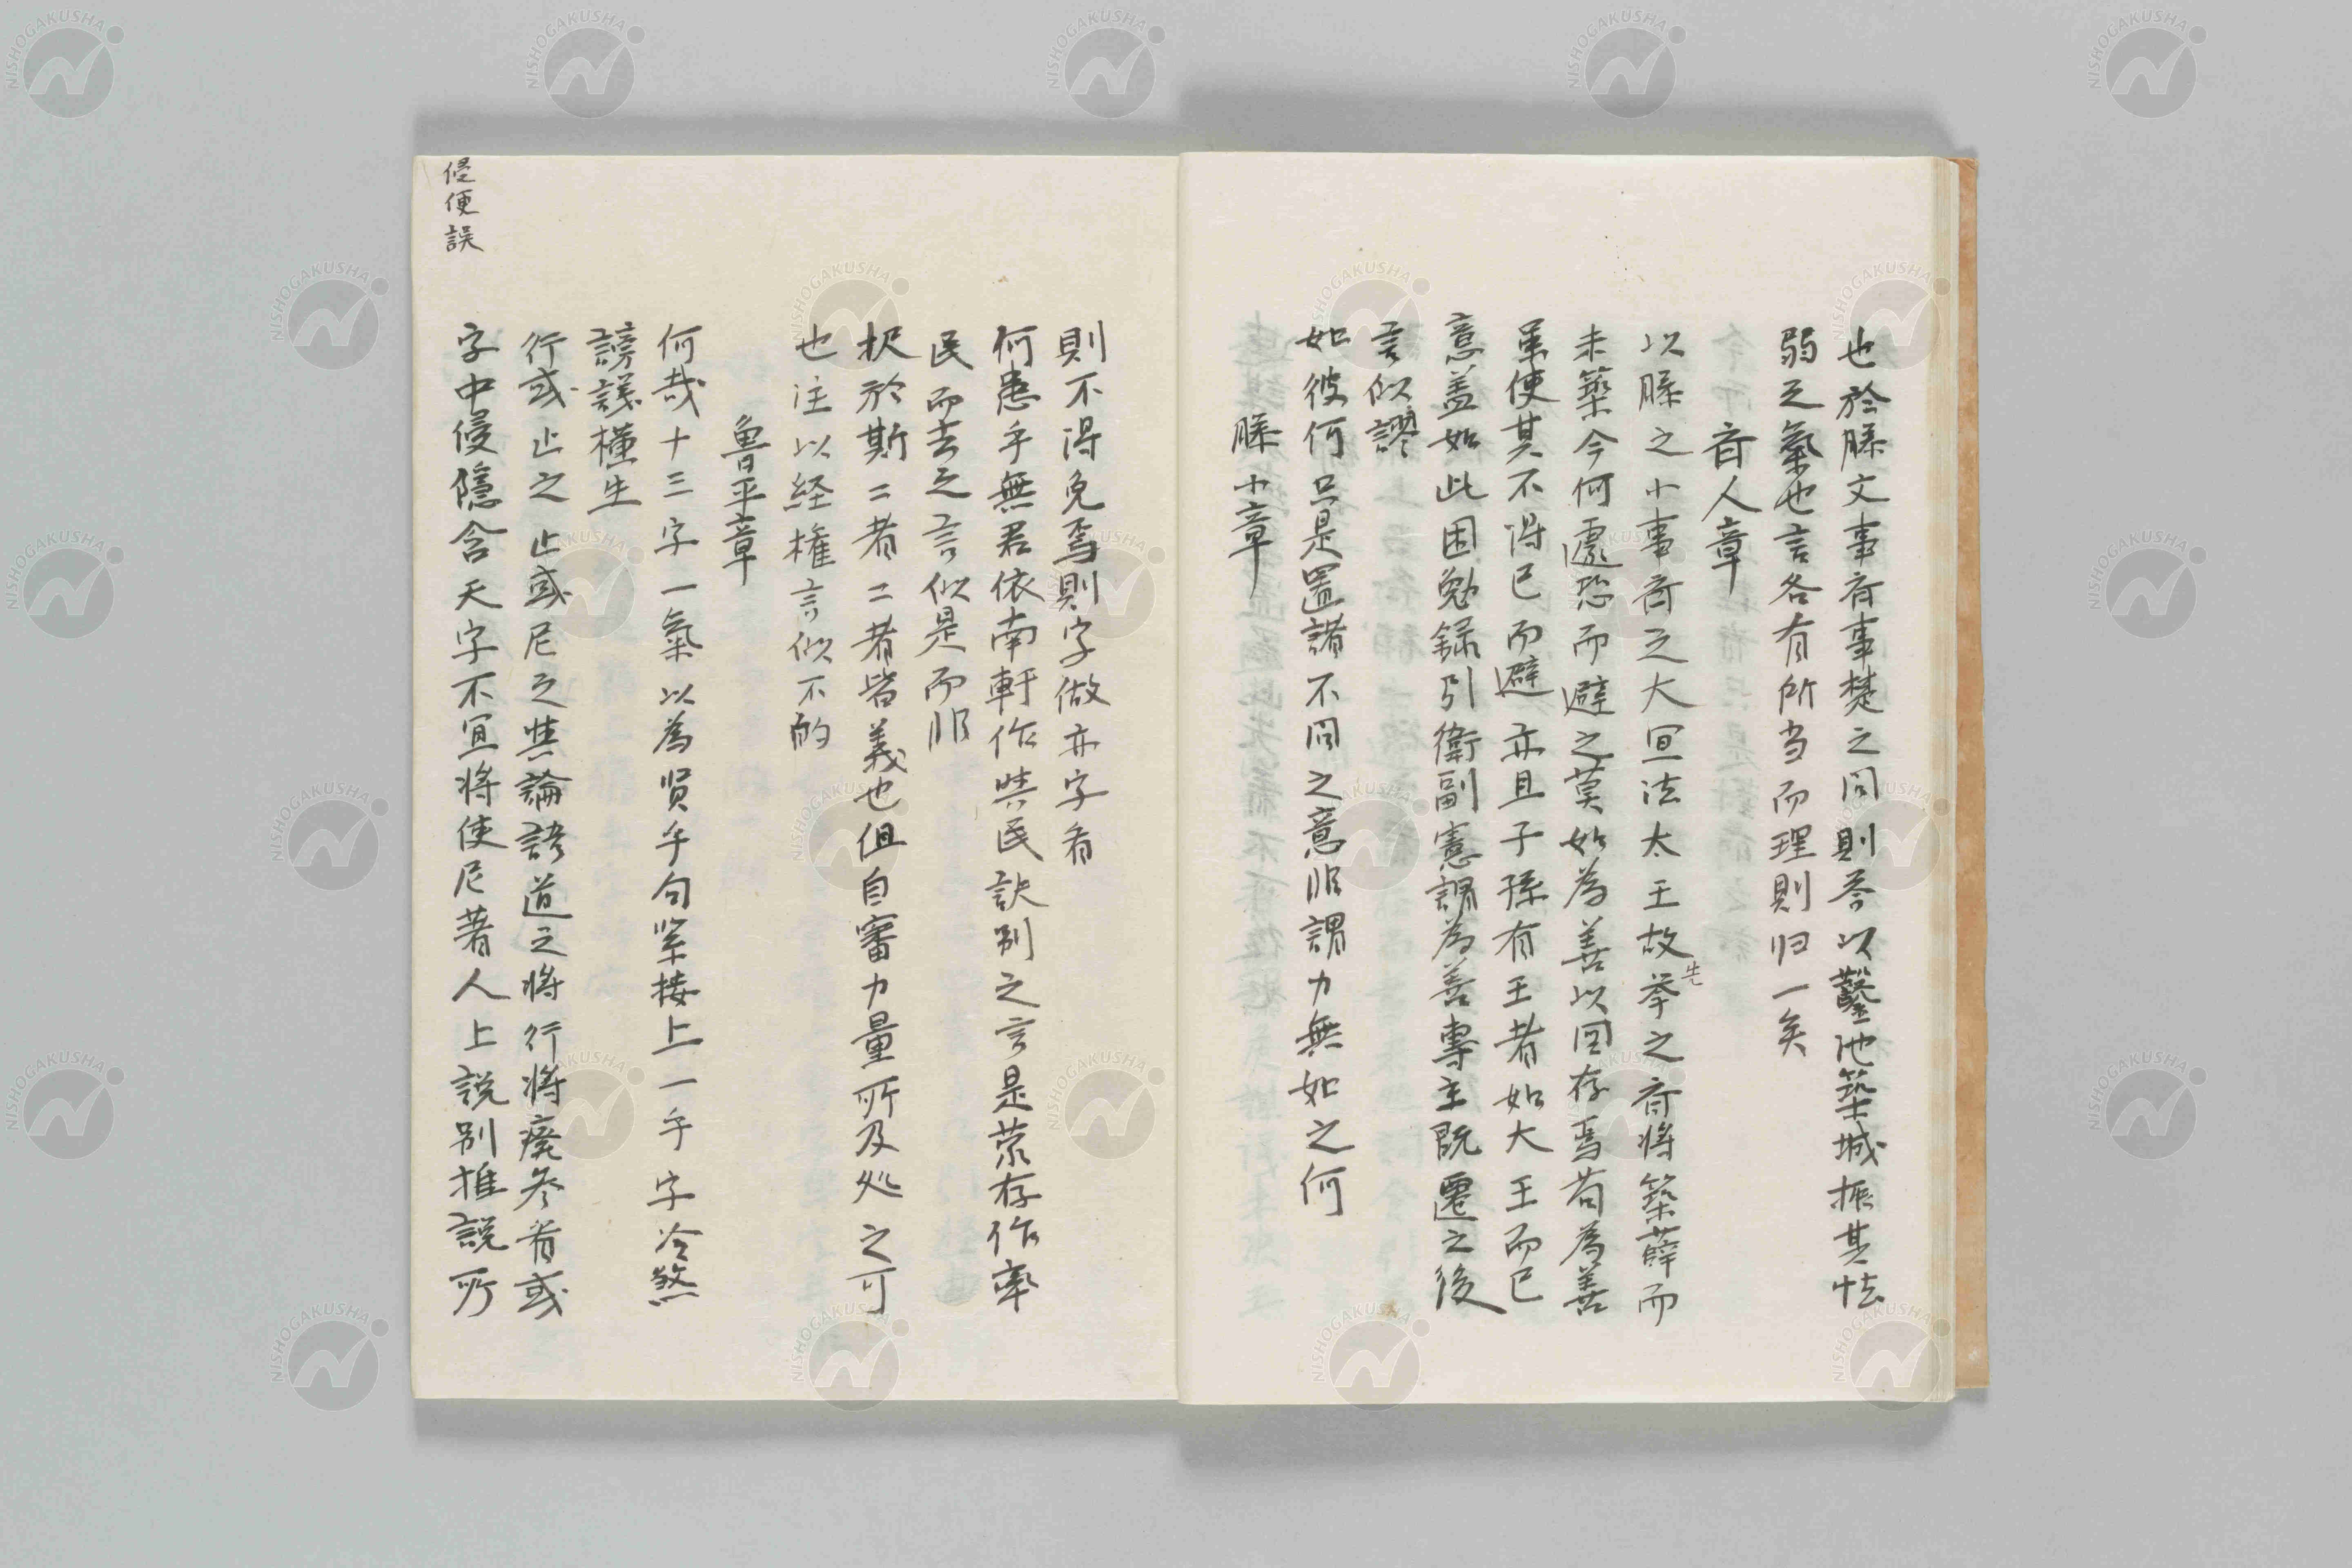 也於滕文事斉事楚之問則答以鑿池築城振其怯
弱之氣也言各有所当而理則归一矣
斉人章
以滕之小事斉之大冝法太王故先挙之斉将築薛而
未築今何遽恐而避之莫如為善以図存焉苟為善
果使其不得已而避亦且子孫有王者如大王而已
意盖如此困勉録引衛副憲謂為善專主既遷之後
言似謬
如彼何只是置諸不問之意非謂力無如之何
滕小章
則不得免焉則字做亦字看
何患乎無君依南軒作与民訣别之言是蒙存作率
民而去之言似是而非
択於斯二者二者皆義也但自審力量所及処之可
也注以経権言似不的
魯平章
何哉十三字一氣以為贤乎句紧接上一乎字冷煞
謗議横生
行或止之止或尼之与論語道之将行将廃参看或
字中侵隐含天字不宜将使尼著人上説别推説所
侵便誤
NISHOGAKUSHA